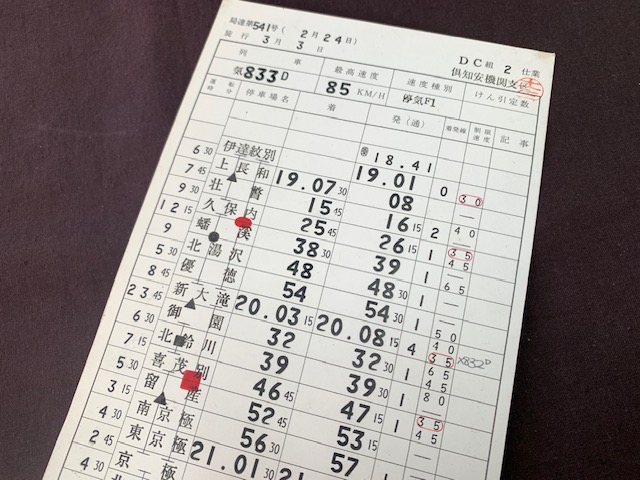 局達第541号(2月24日)
施行3月3日
DC組 2 仕業
倶知安機関支区
列車 最高速度 速度種別 けん引定数
気833D 85 KM/H 停気F1
運転時分 停車場名 着 発(通) 着発線 制限速度 記事
18.41
伊達紋別 19.01 0 30
6 30 上長和 19.07 30 08 —
7 45 壮瞥 15 45 16 15 2 40
9 30 久保内 25 45 26 15 1 35 45
12 15 蟠渓 38 30 39 1 65
9 北湯沢 48 48 30 1 —
5 30 優徳 54 54 30 1 50
8 45 新大滝 20.03 15 20.08 15 4 40 35 ×832D
23 45 御園 32 32 30 1 65 45
6 30 北鈴川 39 39 30 1 80
7 15 喜茂別 46 45 47 15 1 35 45
5 30 留産 52 45 53 15 —
3 15 南京極 56 30 57 1
4 30 東京極 21.01 30 21
2 45 京極
4 30 北